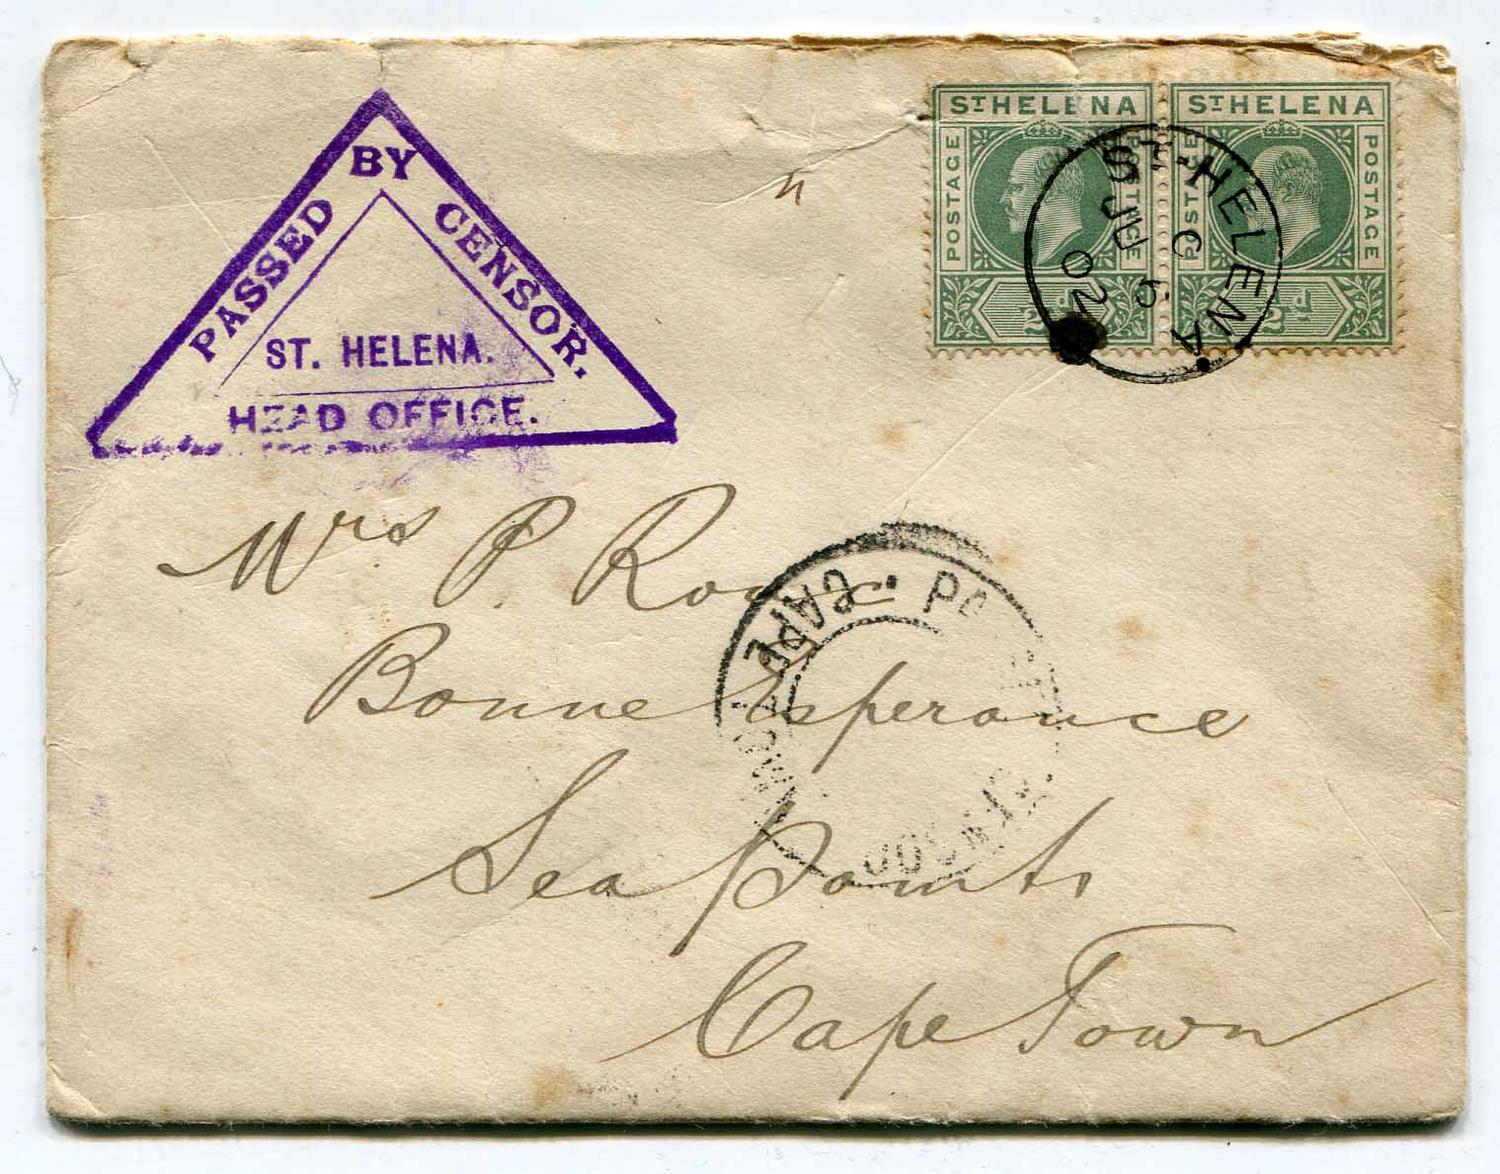 PASSED BY CENSOR.
ST. HELENA.
HEAD OFFICE.
ST HELENA
POSTAGE
POSTAGE
½d
ST HELENA
POSTAGE
POSTAGE
½d
ST. HELENA
C
JU 5
02
Mrs P.
Bonne Esperance
Sea Point
Cape Town
CAPE TOWN